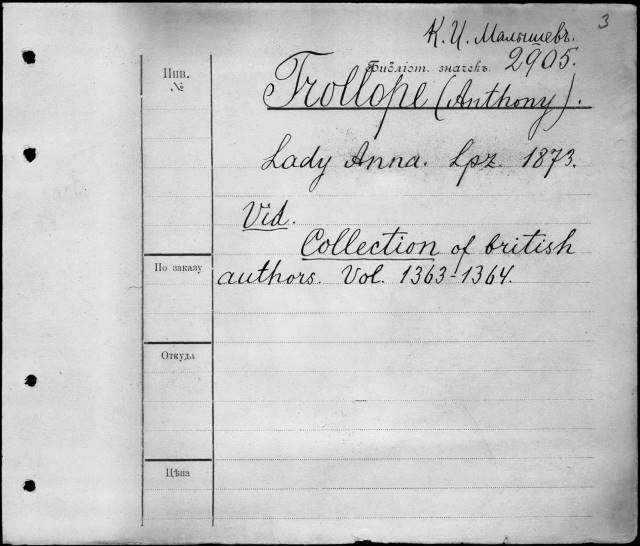 3
К. И. Малышевъ.
Инв. №
Библіот. значекъ 2905.
Trollope (Anthony).
Lady Anna. Lpz. 1873.
Vid.
Collection of british
По заказу
authors. Vol. 1363-1364.
Откуда
Цѣна